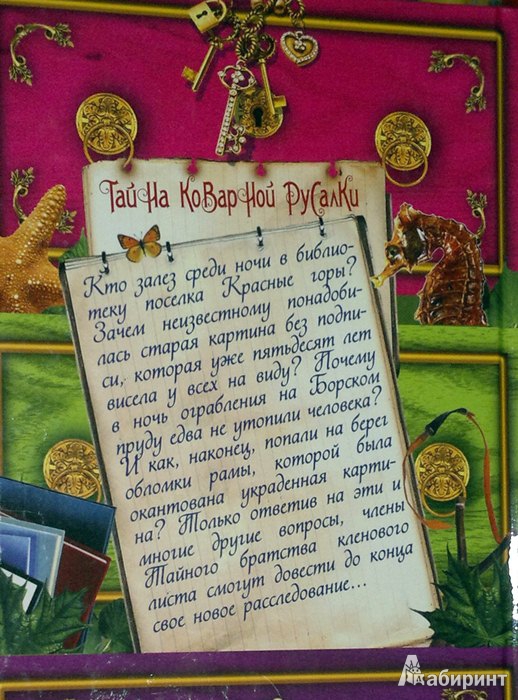 Тайна коварной русалки
Кто залез среди ночи в библио-
теку поселка Красные горы?
Зачем неизвестному понадоби-
лась старая картина без подпи-
си, которая уже пятьдесят лет
висела у всех на виду? Почему
в ночь ограбления на Борском
пруду едва не утопили человека?
И как, наконец, попали на берег
обломки рамы, которой была
окантована украденная карти-
на? Только ответив на эти и
многие другие вопросы, члены
Тайного братства кленового
листа смогут довести до конца
свое новое расследование...
Лабиринт